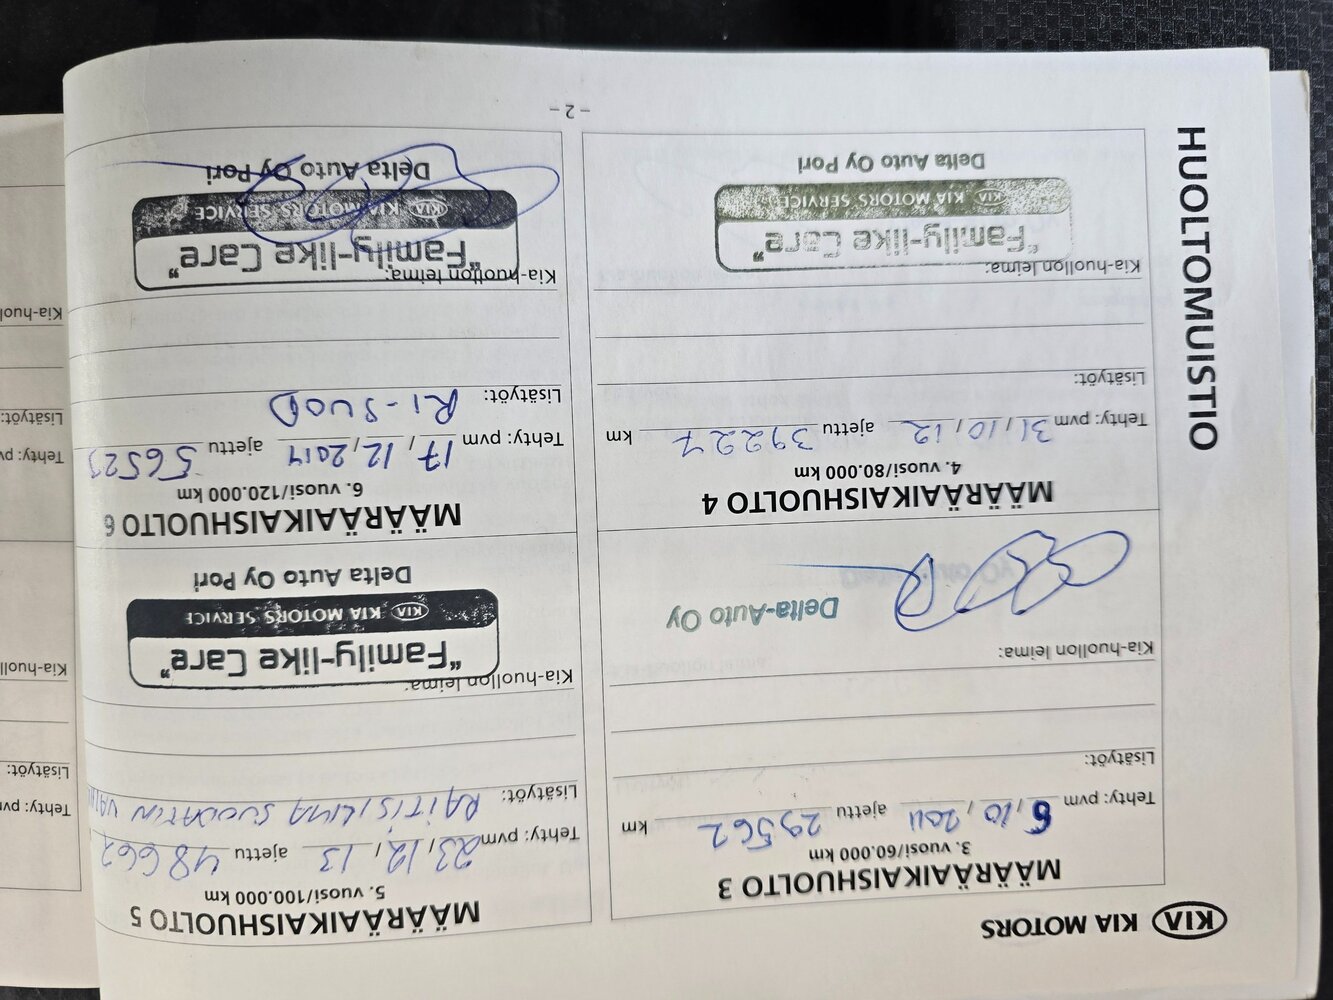 KIA KIA MOTORS
HUOLTOMUISTIO
MÄÄRÄAIKAISHUOLTO 3
3. vuosi/60.000 km
Tehty: pvm 6, 10, 2011 ajettu 29562 km
Lisätyöt:
Kia-huollon leima:
Delta-Auto Oy
MÄÄRÄAIKAISHUOLTO 4
4. vuosi/80.000 km
Tehty: pvm 31, 10, 12 ajettu 39227 km
Lisätyöt:
Kia-huollon leima:
"Family-like Care"
KIA KIA MOTORS SERVICE
Delta Auto Oy Pori
MÄÄRÄAIKAISHUOLTO 5
5. vuosi/100.000 km
Tehty: pvm 23, 12, 13 ajettu 48662
Lisätyöt: RAITISILMA SUODATIN
Kia-huollon leima:
"Family-like Care"
KIA KIA MOTORS SERVICE
Delta Auto Oy Pori
MÄÄRÄAIKAISHUOLTO 6
6. vuosi/120.000 km
Tehty: pvm 17, 12, 2014 ajettu 56523
Lisätyöt: RI-SUOD
Kia-huollon leima:
"Family-like Care"
KIA KIA MOTORS SERVICE
Delta Auto Oy Pori
- 2 -
Tehty: pv
Lisätyöt:
Kia-huoll
Tehty: pv
Lisätyöt:
Kia-huol